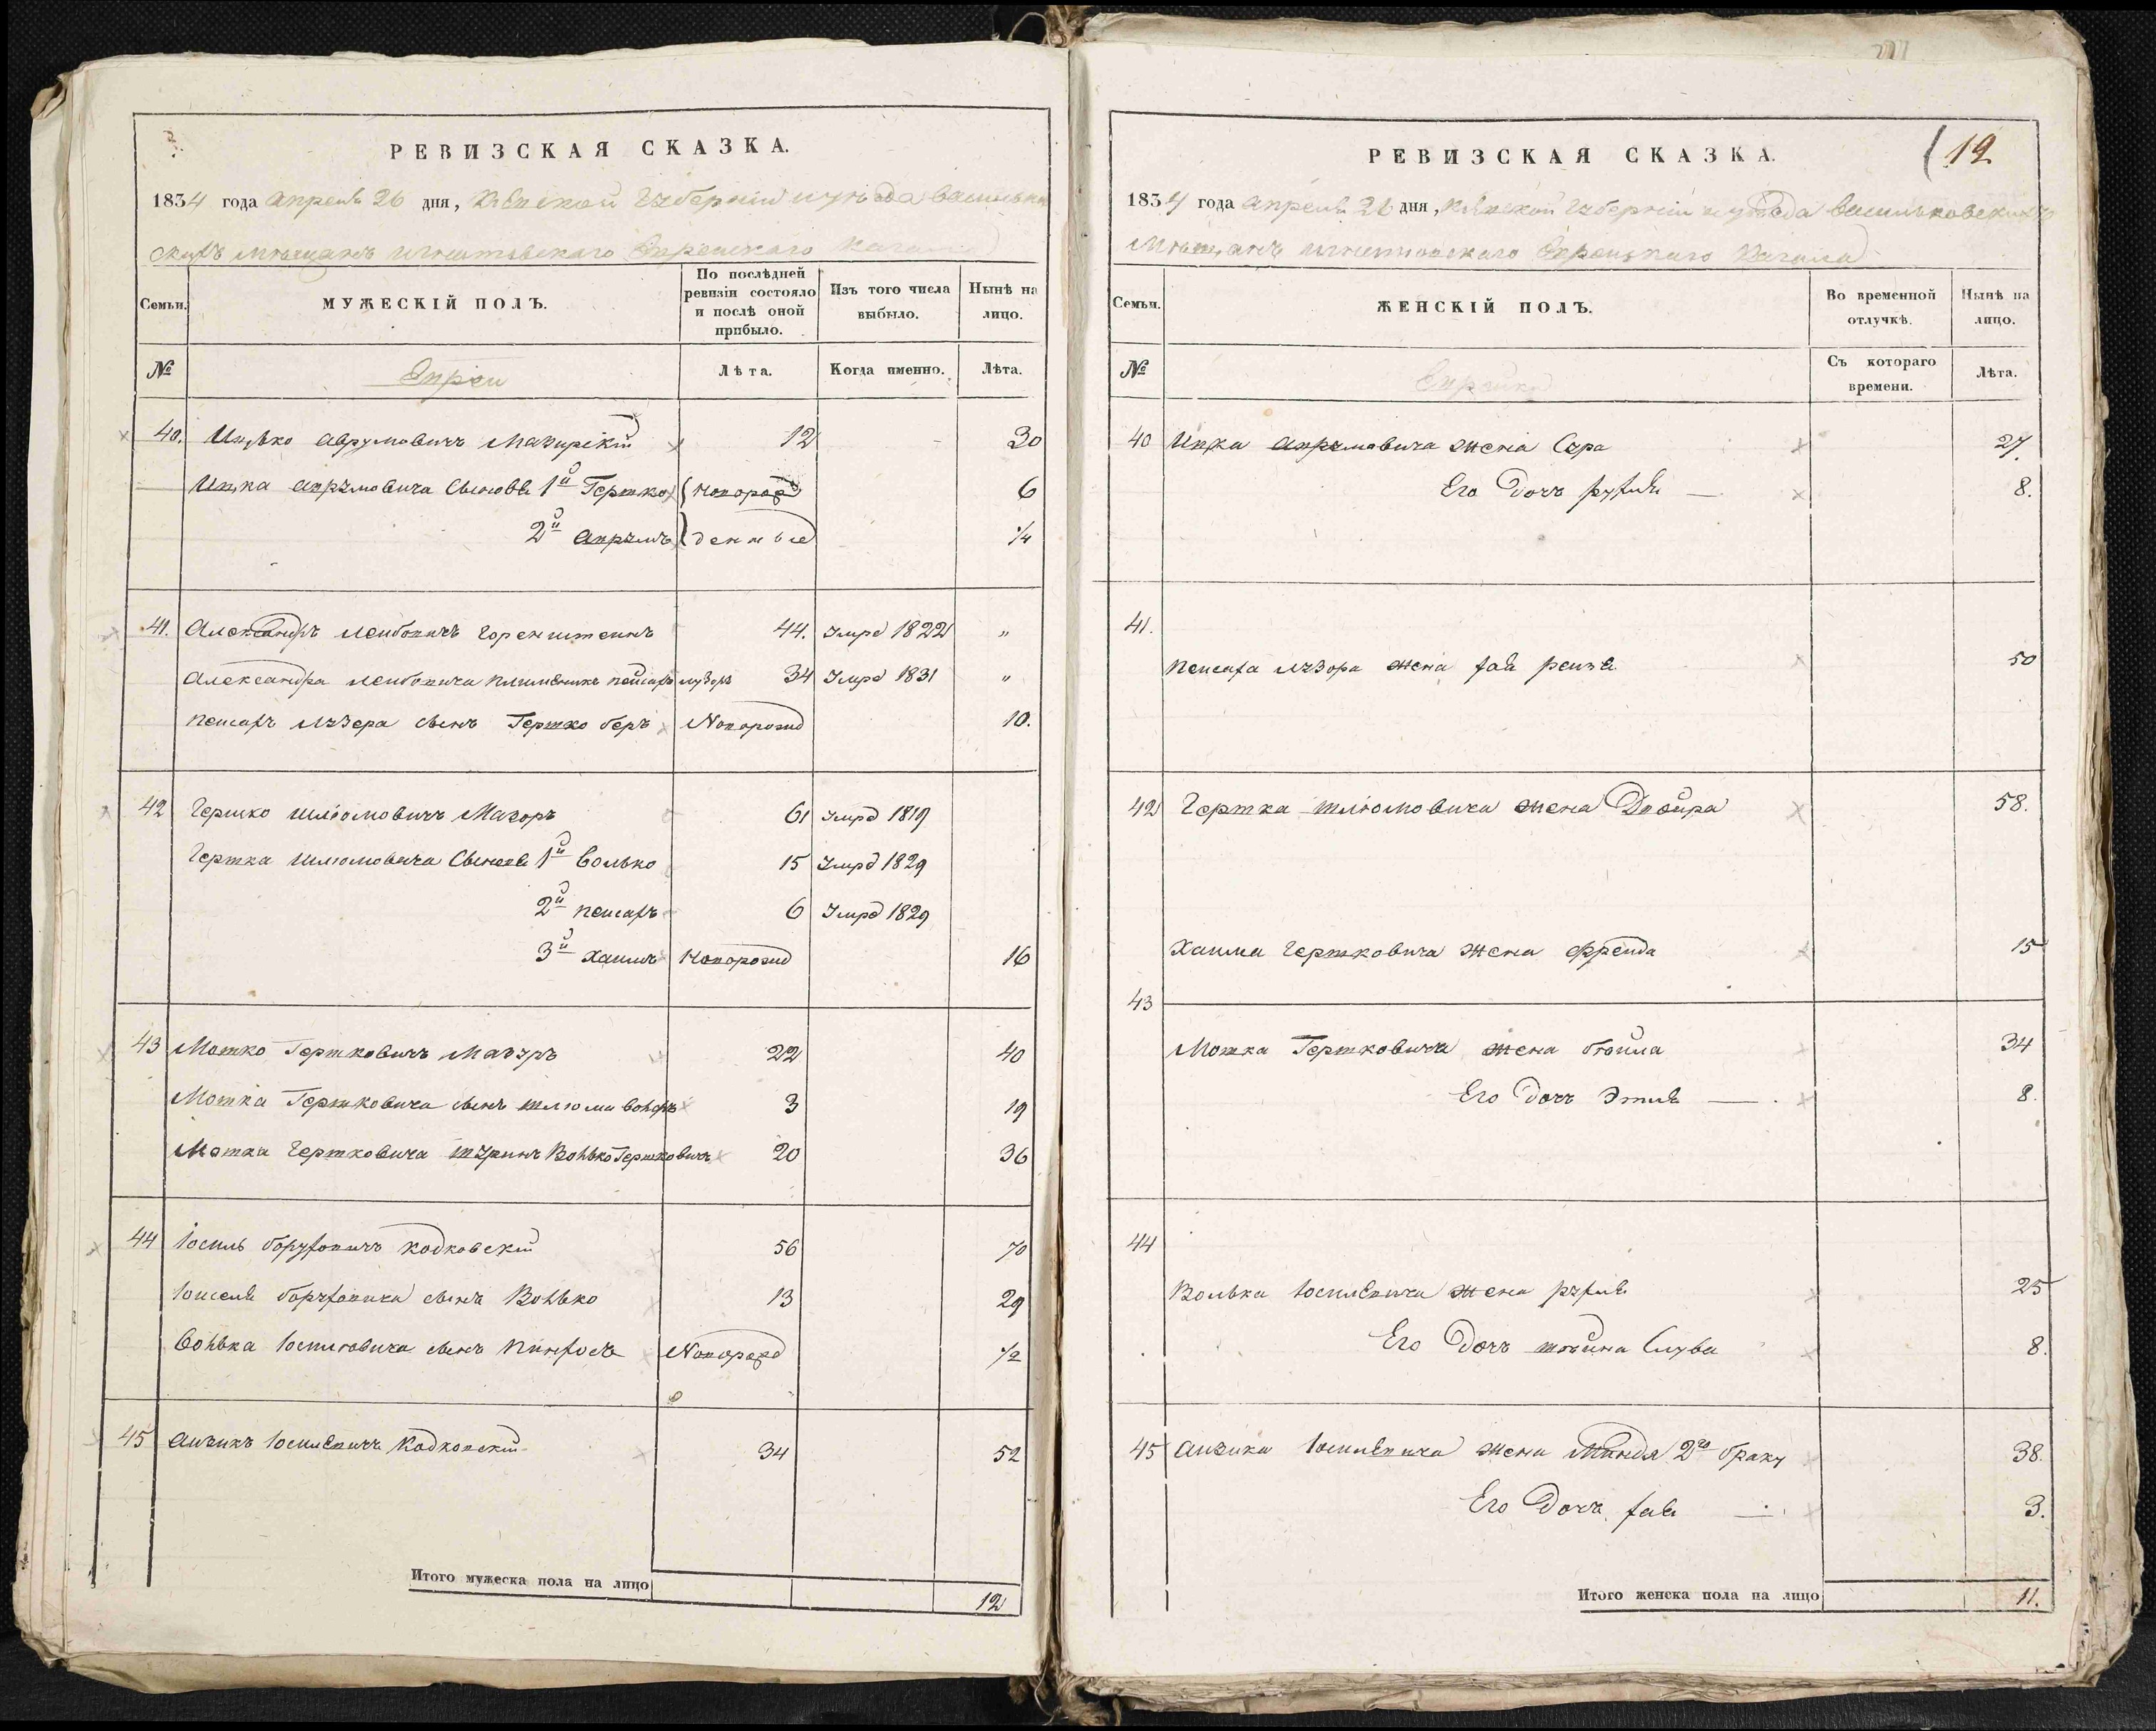 РЕВИЗСКАЯ СКАЗКА.
1834 года апреля 26 дня, Кіевской Губерніи и уезда Васильков
скихъ мещанъ Еврейскаго Кагала
Семьи.
МУЖЕСКІЙ ПОЛЪ.
По послѣдней ревизіи состояло и послѣ оной прибыло.
Изъ того числа выбыло.
Нынѣ на лицо.
№
Евреи
Лѣта.
Когда именно.
Лѣта.
40. Ицько Аврумовичъ 12 30
Ицка Аврумовича Сыновья 1й Гершко Новорож 6
2й Аврумъ денные 1/4
41. Александръ Лейбовичъ Горенштеинъ 44. Умре 1822 "
Александра Лейбовича племеникъ Пейсахъ Лузоръ 34 Умре 1831 "
Пейсахъ Лузера сынъ Гершко Беръ Новорожд 10.
42 Гершко Шліомовичъ Мазоръ 61 Умре 1819
Гершка Шлюмовича Сыновья 1й Волько 15 Умре 1829
2й Пейсахъ 6 Умре 1829
3й Хаимъ Новорожд 16
43 Мошко Гершковичъ Мазуръ 22 40
Мошка Гершковича сынъ Шлюма 3 19
Мошка Гершковича шуринъ Волько Гершковичъ 20 36
44 Іосиль Боруховичъ Кодковскій 56 70
Боруховича сынъ Волько 13 29
Волька сынъ Пинхосъ Новорожд 1/2
45 Аизикъ Іосилевичъ Кодковскій 34 52
Итого мужеска пола на лицо 12
12
РЕВИЗСКАЯ СКАЗКА.
1834 года апреля 26 дня, Кіевской Губерніи и уезда Васильковскихъ
Мещанъ Еврейскаго Кагала
Семьи.
ЖЕНСКІЙ ПОЛЪ.
Во временной отлучкѣ.
Нынѣ на лицо.
№
Еврейки
Съ котораго времени.
Лѣта.
40 Ицка Аврумовича жена Сура 27.
Его дочь Рухля 8.
41.
Пейсаха Лузора жена Хая Рейзя 50
42 Гершка Шлюмовича жена Двойра 58.
Хаима Гершковича жена Фрейда 15
43
Мошка Гершковича жена Бейла 34
Его дочь Этля 8.
44
Волька Іосилевича жена Рухля 25
Его дочь 8.
45 Аизика Іосилевича жена Миндя 2го браку 38.
Его дочь Хая 3.
Итого женска пола на лицо 11.